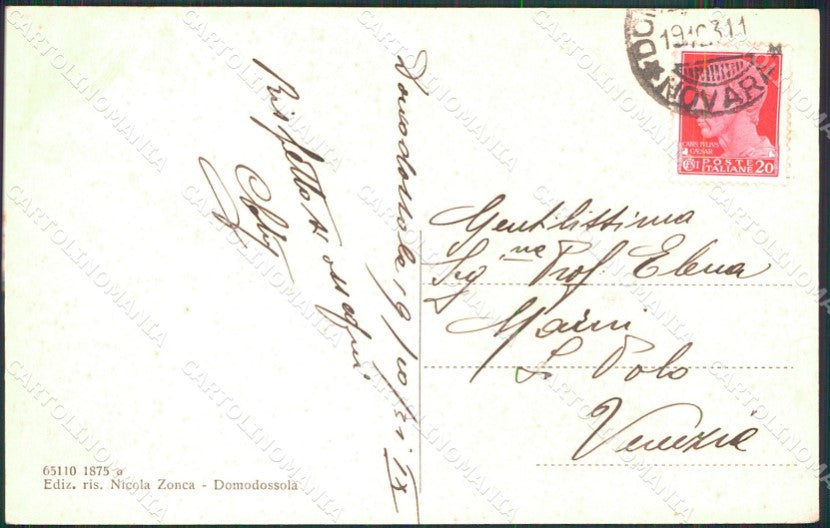 Domodossola 19/10/31 IX
Rispettosi ossequi
DOMO
19.10.31.11
NOVARA
CAIVS IVLIVS
CAESAR
CENT POSTE
ITALIANE 20
Gentilissima
Sig.na Prof. Elena
Maini
S. Polo
Venezia
65110 1875 a
Ediz. ris. Nicola Zonca - Domodossola
CARTOLINOMANIA